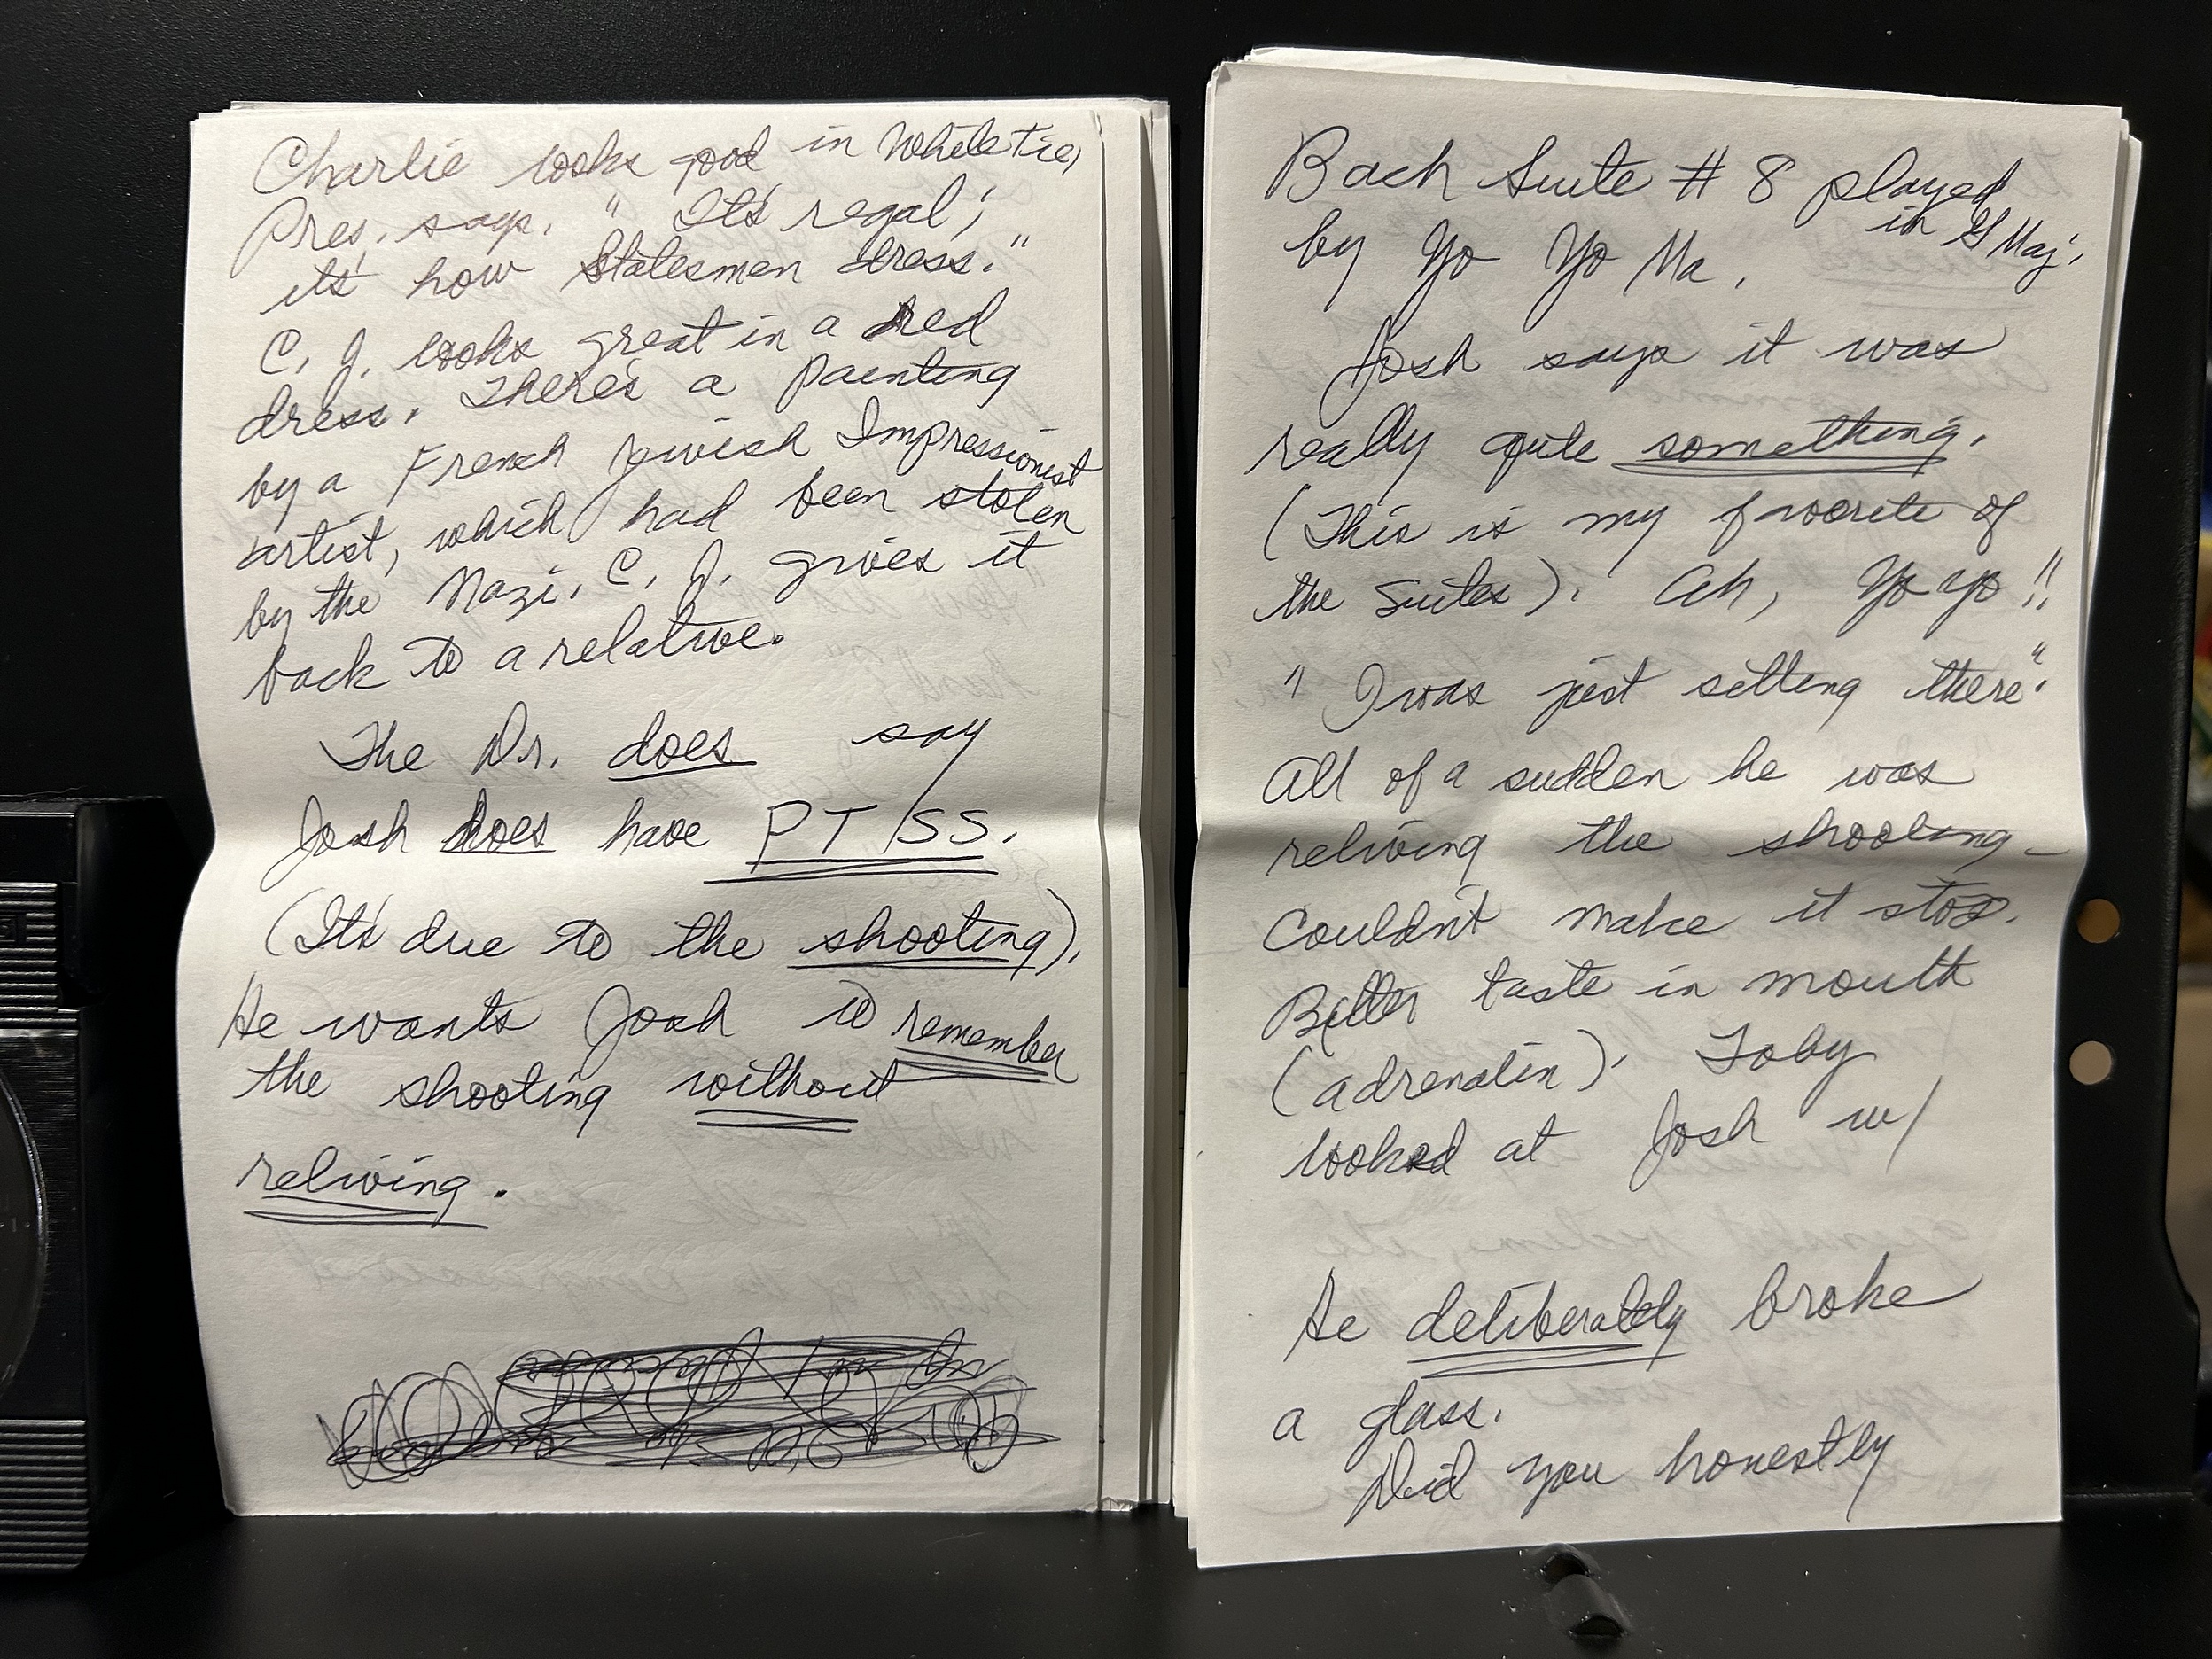 Charlie looks good in White Tie,
Pres. says. " It's regal;
it's how Statesmen dress."
C. J. looks great in a red
dress. There's a painting
by a French Jewish Impressionist
artist, which had been stolen
by the Nazi. C. J. gives it
back to a relative.
The Dr. does say
Josh does have PTSS.
(It's due to the shooting).
He wants Josh to remember
the shooting without
reliving.
Bach Suite # 8 played
in G Maj.
by Yo Yo Ma.
Josh says it was
really quite something.
(This is my favorite of
the Suites). Ah, Yo Yo!!
" I was just sitting there".
All of a sudden he was
reliving the shooting -
Couldn't make it stop.
Bitter taste in mouth
(adrenalin). Toby
looked at Josh w/
He deliberately broke
a glass.
Did you honestly